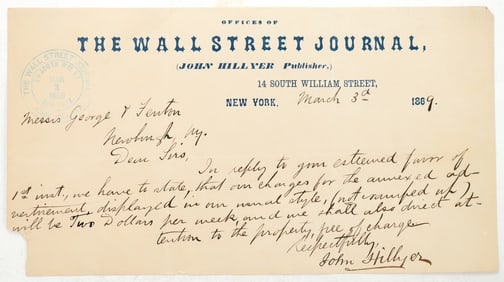 OFFICES OF
THE WALL STREET JOURNAL,
(JOHN HILLYER Publisher,)
14 SOUTH WILLIAM STREET,
NEW YORK. March 3d 1889.
THE WALL STREET JOURNAL
Messrs George & Fenton
Newburgh, Ny.
Dear Sirs,
In reply to your esteemed favor of
1st inst., we have to state, that our charges for the annexed ad-
vertisement, displayed in our usual style, (not cramped up),
will be Two Dollars per week, and we shall also direct at-
tention to the property, free of charge
Respectfully,
John Hillyer